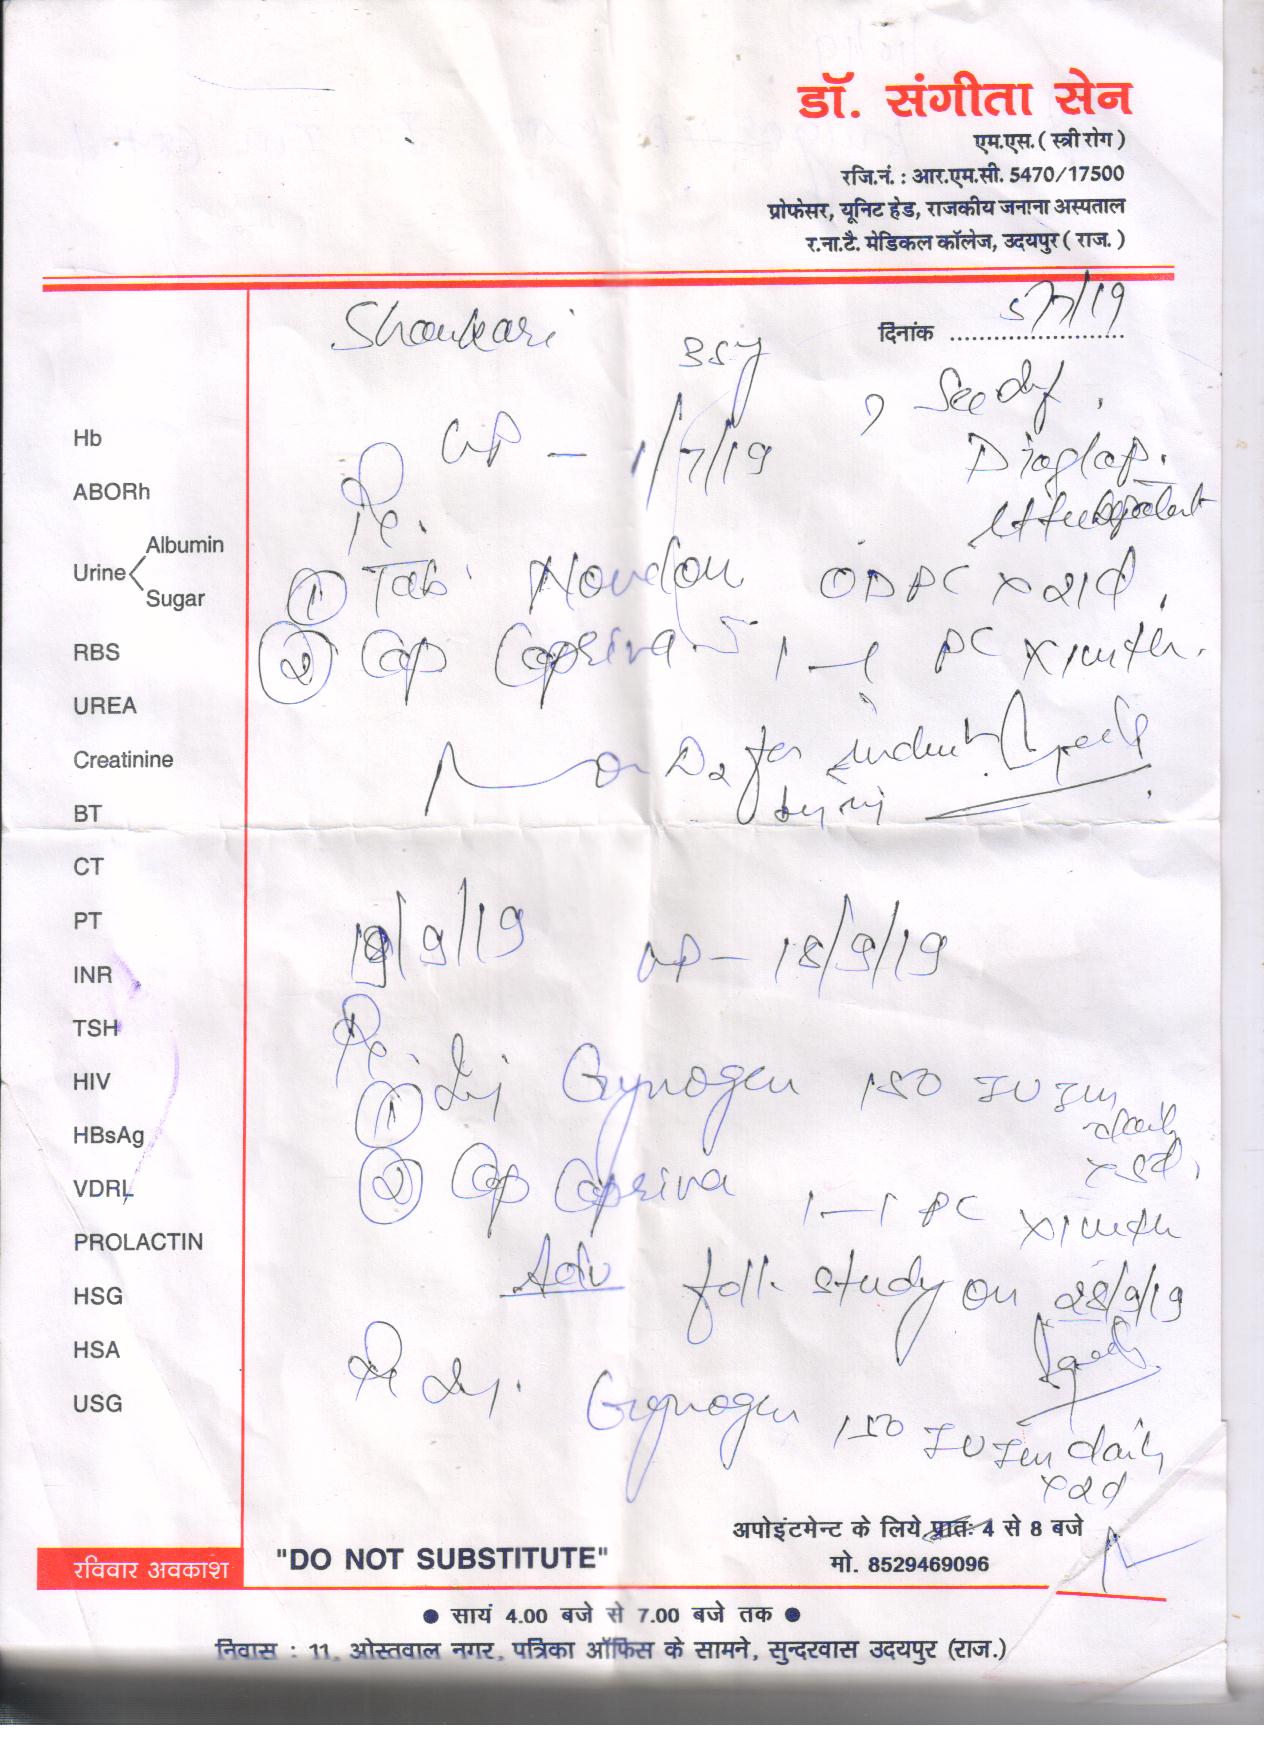 डॉ. संगीता सेन
एम.एस. ( स्त्री रोग )
रजि.नं. : आर.एम.सी. 5470/17500
प्रोफेसर, यूनिट हेड, राजकीय जनाना अस्पताल
र.ना.टै. मेडिकल कॉलेज, उदयपुर ( राज. )
दिनांक 5/7/19
Shankari
35y
1/7/19
① Tab. OD PC x 21d.
② Cap Capriva-S 1-1 PC x 1 mth.
18/9/19 - 18/9/19
① Inj Gynogen 150 IU Im daily x 5d.
② Cap Capriva 1-1 PC x 1 mth
Adv foll. study on 28/9/19
Inj. Gynogen 150 IU Im daily x 2d
Hb
ABORh
Urine Albumin
Sugar
RBS
UREA
Creatinine
BT
CT
PT
INR
TSH
HIV
HBsAg
VDRL
PROLACTIN
HSG
HSA
USG
रविवार अवकाश
"DO NOT SUBSTITUTE"
अपोइंटमेन्ट के लिये प्रातः 4 से 8 बजे
मो. 8529469096
● सायं 4.00 बजे से 7.00 बजे तक ●
निवास : 11, ओस्तवाल नगर, पत्रिका ऑफिस के सामने, सुन्दरवास उदयपुर (राज.)